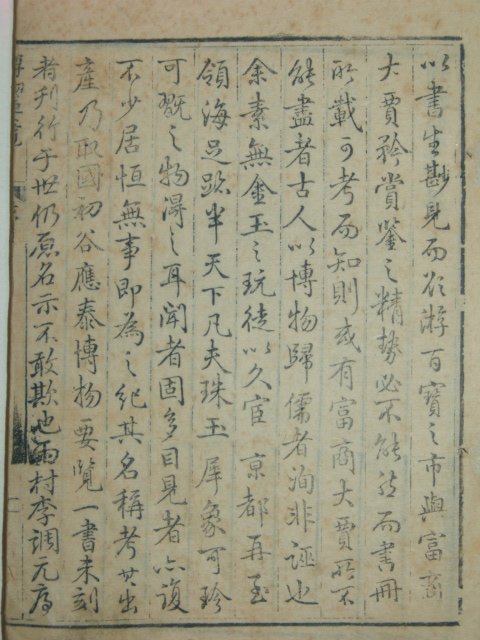 以書生尠見而欲游百寶之市與富商
大賈矜賞鑒之精勢必不能然而書冊
所載可考而知則或有富商大賈所不
能盡者古人以博物歸儒者洵非誣也
余素無金玉之玩徒以久宦京都再至
嶺海足跡半天下凡夫珠玉犀象可珍
可翫之物得之耳聞者固多目見者亦復
不少居恒無事即為之紀其名稱考其出
產乃取國初谷應泰博物要覽一書未刻
者刊行于世仍原名示不敢欺也雨村李調元序